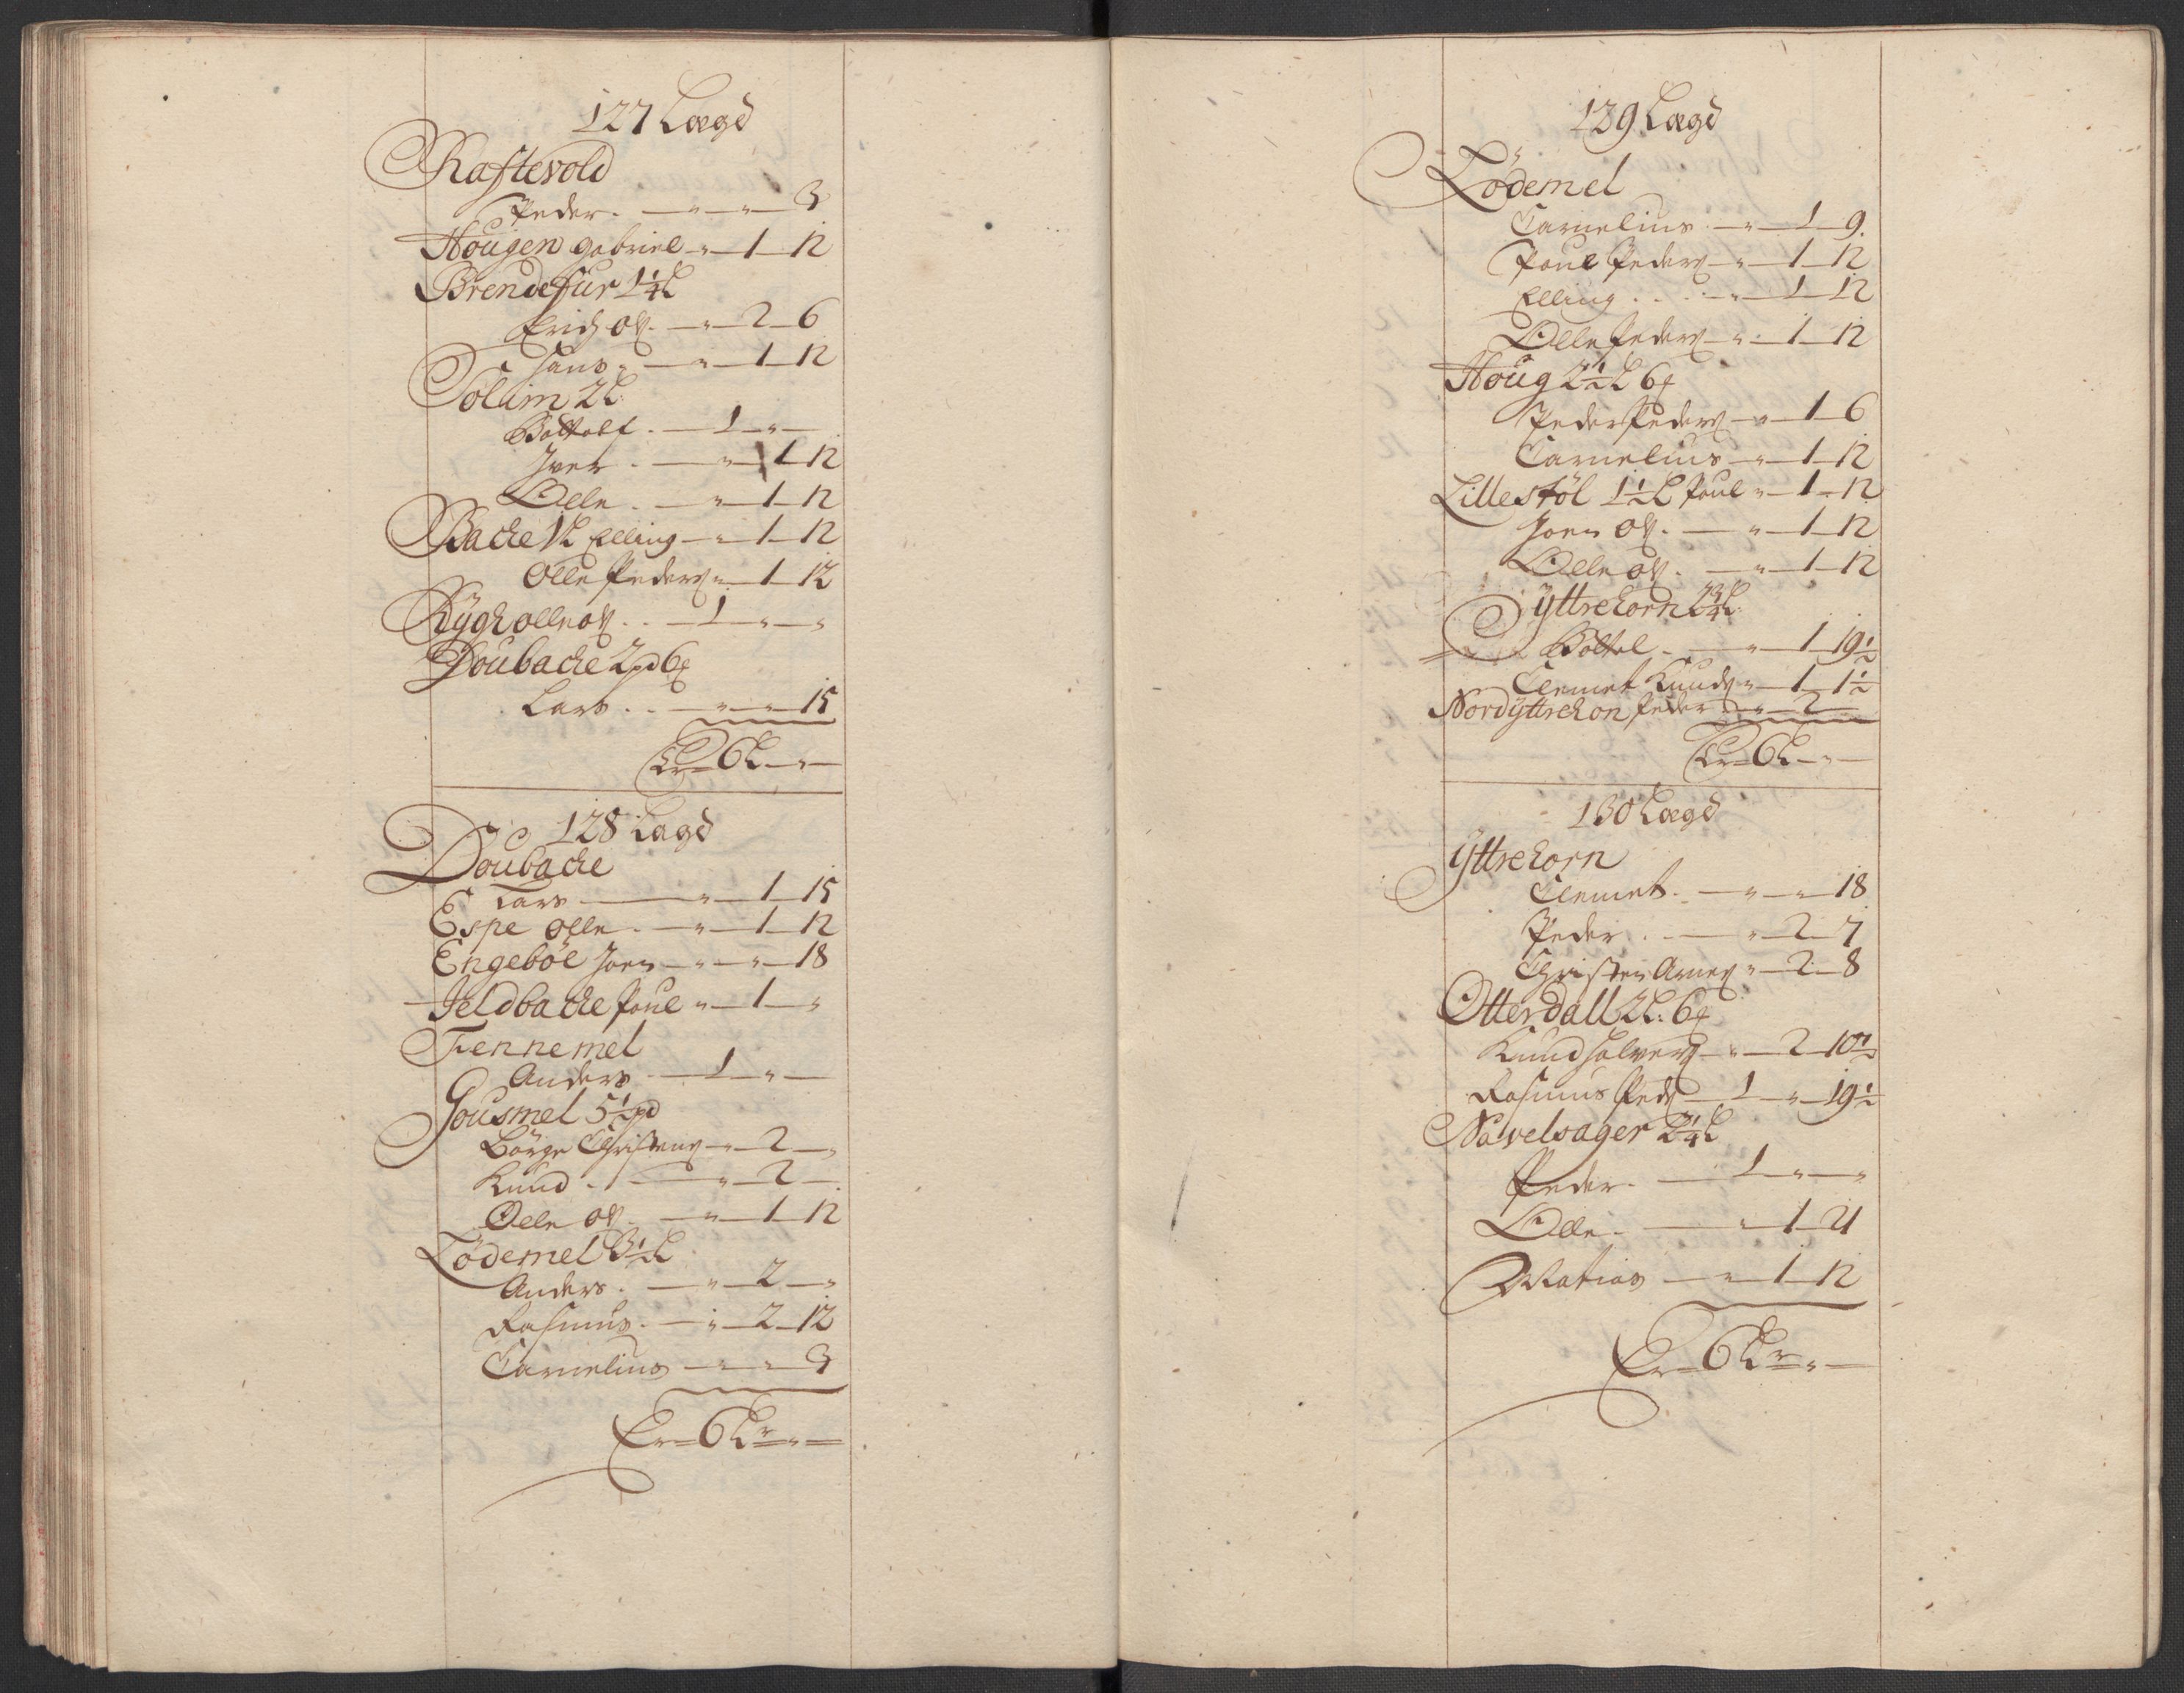 127 Lægd
Raftevold
Peder. — " — " — 3
Hougen gabriel " — 1 — 12
Brendefur 1¼ L
Erich Ol. — " — 2 — 6
Hans. — " — 1 — 12
Solim 2 L
Bottolf. — 1 — " —
Iver. — " — 1 — 12
Olle. — " — 1 — 12
Backe 1 L Elling — " — 1 — 12
Olle Peders " — 1 — 12
Rygh olle ols. — 1 — " — "
Doubacke 2 pd 6
Lars. — " — " — 15
Er — 6 L — " —
128 Lægd
Doubacke
Lars — " — 1 — 15
Espe Olle. — " — 1 — 12
Engeböe Joen — " — " — 18
Jeldbacke Poul " — 1 — "
Fennemel
Anders — 1 — " —
Gousmel 5½ pd
Börge Christens — " — 2 — "
Knud. — " — 2 —
Olle Ols — " — 1 — 12
Lödemel 3½ L
Anders. — " — 2 — "
Rasmus. — " — 2 — 12
Carnelius — " — " — 9
Er — 6 Lr — " —
129 Lægd
Lödemel
Carnelius — " — 1 — 9.
Poul Peders — " — 1 — 12
Elling . . . — " — 1 — 12
Olle Peders — " — 1 — 12
Houg 2½ L 6
Peder Peders — " — 1 — 6
Carnelius — " — 1 — 12
Lillestöl 1½ L Poul " — 1 — 12
Joen Ols. — " — 1 — 12
Olle Ols. — " — 1 — 12
Yttrehorn 2¾ L
Bottel — " — 1 — 19½
Clemet Knuds " — 1 — 1½
Nordyttrehon Peder " — 2 —
Er — 6 L — " —
130 Lægd
Yttrehorn
Clemet. — " — " — 18
Peder . — " — 2 — 7
Christen Arnes " — 2 — 8
Otterdall 2 L: 6
Knud Halvors — " — 2 — 10½
Rasmus Peds — 1 — " — 19½
Navelsager 2¼ L
Peder. — 1 — " — "
Olle. — " — 1 — 21
Matias — " — 1 — 12
Er — 6 Lr — " —